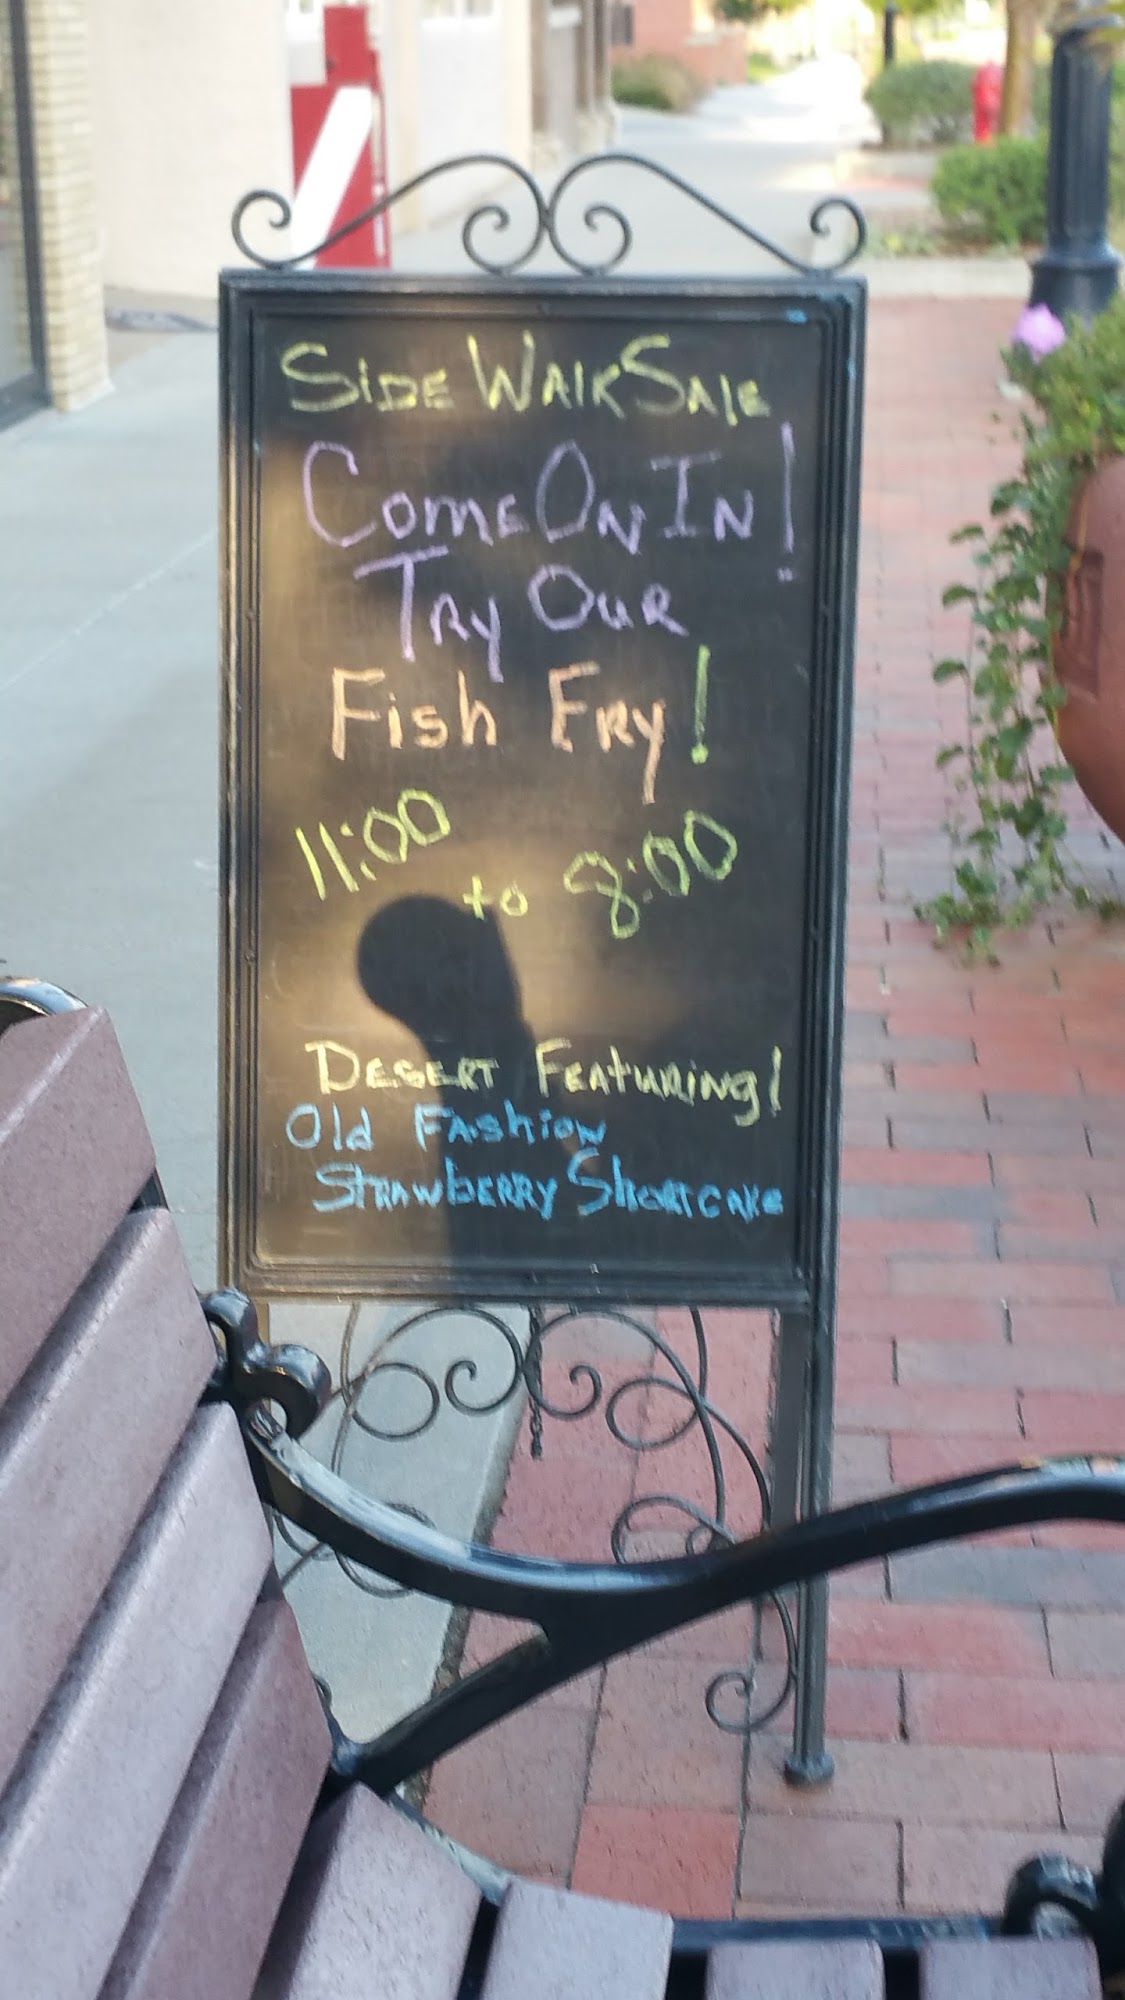 Side Walk Sale
Come On In!
Try Our
Fish Fry!
11:00 to 8:00
Desert Featuring!
Old Fashion
Strawberry Shortcake